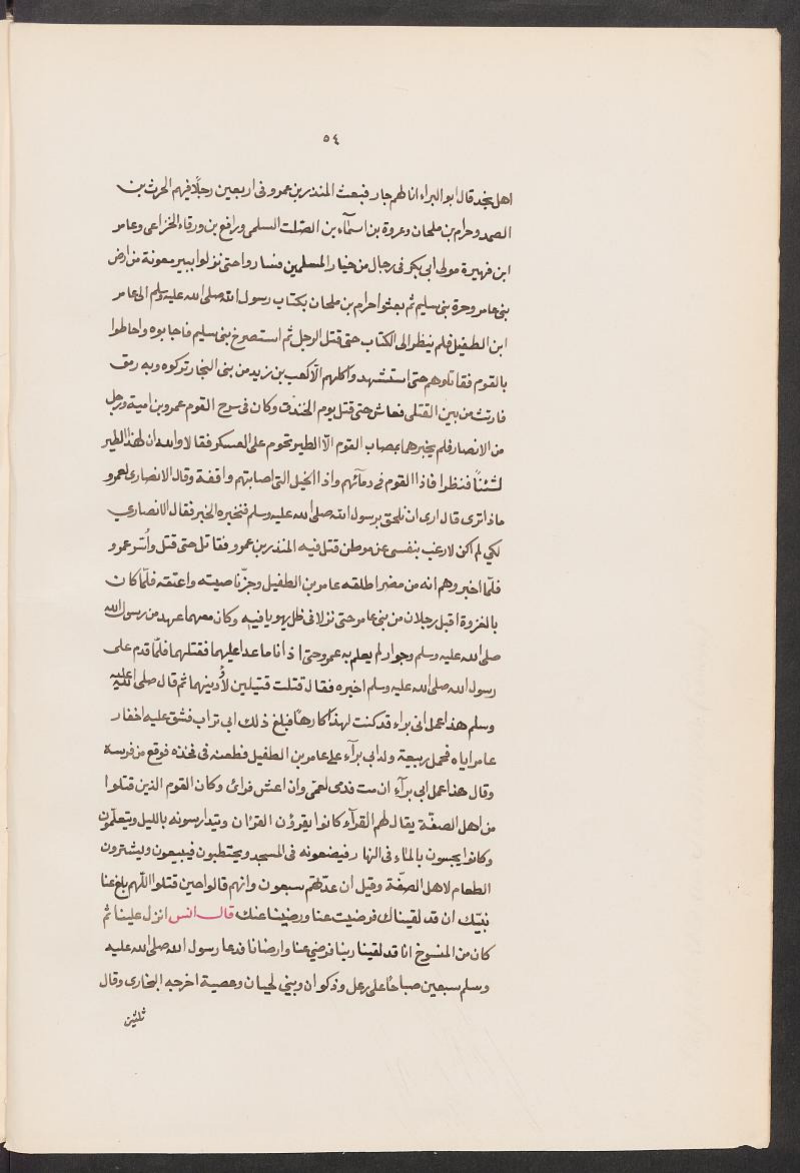 ٥٤
اهل نجد قال ابو البراء انا لهم جار فبعث المنذر بن عمرو فى اربعين رجلاً فيهم الحرث بن
الصمد وحرام بن ملحان وعروة بن اسمآء بن الصّلت السلمى ورافع بن ورقاء الخزاعى وعامر
ابن فهيرة مولى ابى بكر فى رجال من خيار المسلمين فساروا حتى نزلوا ببير معونة من ارض
بنى عامر وحرة بنى سليم ثم بعثوا حرام بن ملحان بكتاب رسول الله صلى الله عليه وسلم الى عامر
ابن الطفيل فلم ينظر الى الكتاب حتى قتل الرجل ثم استصرخ بنى سليم فاجابوه واحاطوا
بالقوم فقاتلوهم حتى استشهدوا كلهم الّا كعب بن زيد من بنى النجار تركوه وبه رمق
فارتث من بين القتلى فعاش حتى قتل يوم الخندق وكان فى سرح القوم عمرو بن امية ورجل
من الانصار فلم يخبرهما بمصاب القوم الّا الطير تحوم على العسكر فقالا والله ان لهذا الطير
لشئناً فنظرا فاذا القوم فى دمآئهم واذا الخيل التى اصابتهم واقفة وقال الانصارى لعمرو
ماذا ترى قال ارى ان نلحق برسول الله صلى الله عليه وسلم فنخبره الخبر فقال الانصاري
لكي لم اكن لارغب بنفسى عن موطن قتل فيه المنذر بن عمرو فقاتل حتى قتل وأسر عمرو
فلمّا اخبروهم انه من مضر اطلقه عامر بن الطفيل وجزّ ناصيته واعتقه فلمّا كان
بالغزوة اقبل رجلان من بنى عامر حتى نزلا فى ظل يهويا فيه وكان معهما عهد من رسول الله
صلى الله عليه وسلم وجوار لم يعلم به عمرو حتى اذا ناما عدا عليهما فقتلهما فلمّا قدم على
رسول الله صلى الله عليه وسلم اخبره فقال قتلت قتيلين لأدينهما ثم قال صلى الله عليه
وسلم هذا عمل ابى براء قد كنت لهذا كارهاً فبلغ ذلك ابى تراب فشق عليه اخفار
عامر اياه فحمل ربيعة ولد ابى برآء على عامر بن الطفيل فطعنه فى فخذه فوقع من فرسه
وقال هذا عمل ابى برآء ان مت فدمى لعمّى وان اعش فرائ وكان القوم الذين قتلوا
من اهل الصفّة يقال لهم القرآء كانوا يقرؤن القرٔان ويتدارسونه بالليل ويتعلّمون
وكانوا يجيبون بالماء فى النهار فيضعونه فى المسجد ويحتطبون فيبيعون ويشترون
الطعام لاهل الصفّة وقيل ان عدّتهم سبعون وانهم قالوا حين قتلوا اللّهم بلغ عنا
نبيّك ان قد لقيناك فرضيت عنا ورضينا عنك قال انس انزل علينا ثم
كان من المنسوخ انا قد لقينا ربنا فرضي عنا وارضانا فدعا رسول الله صلى الله عليه
وسلم سبعين صباحاً على رعل وذكوان وبني لحيان وعصية اخرجه البخارى وقال
ثلثين